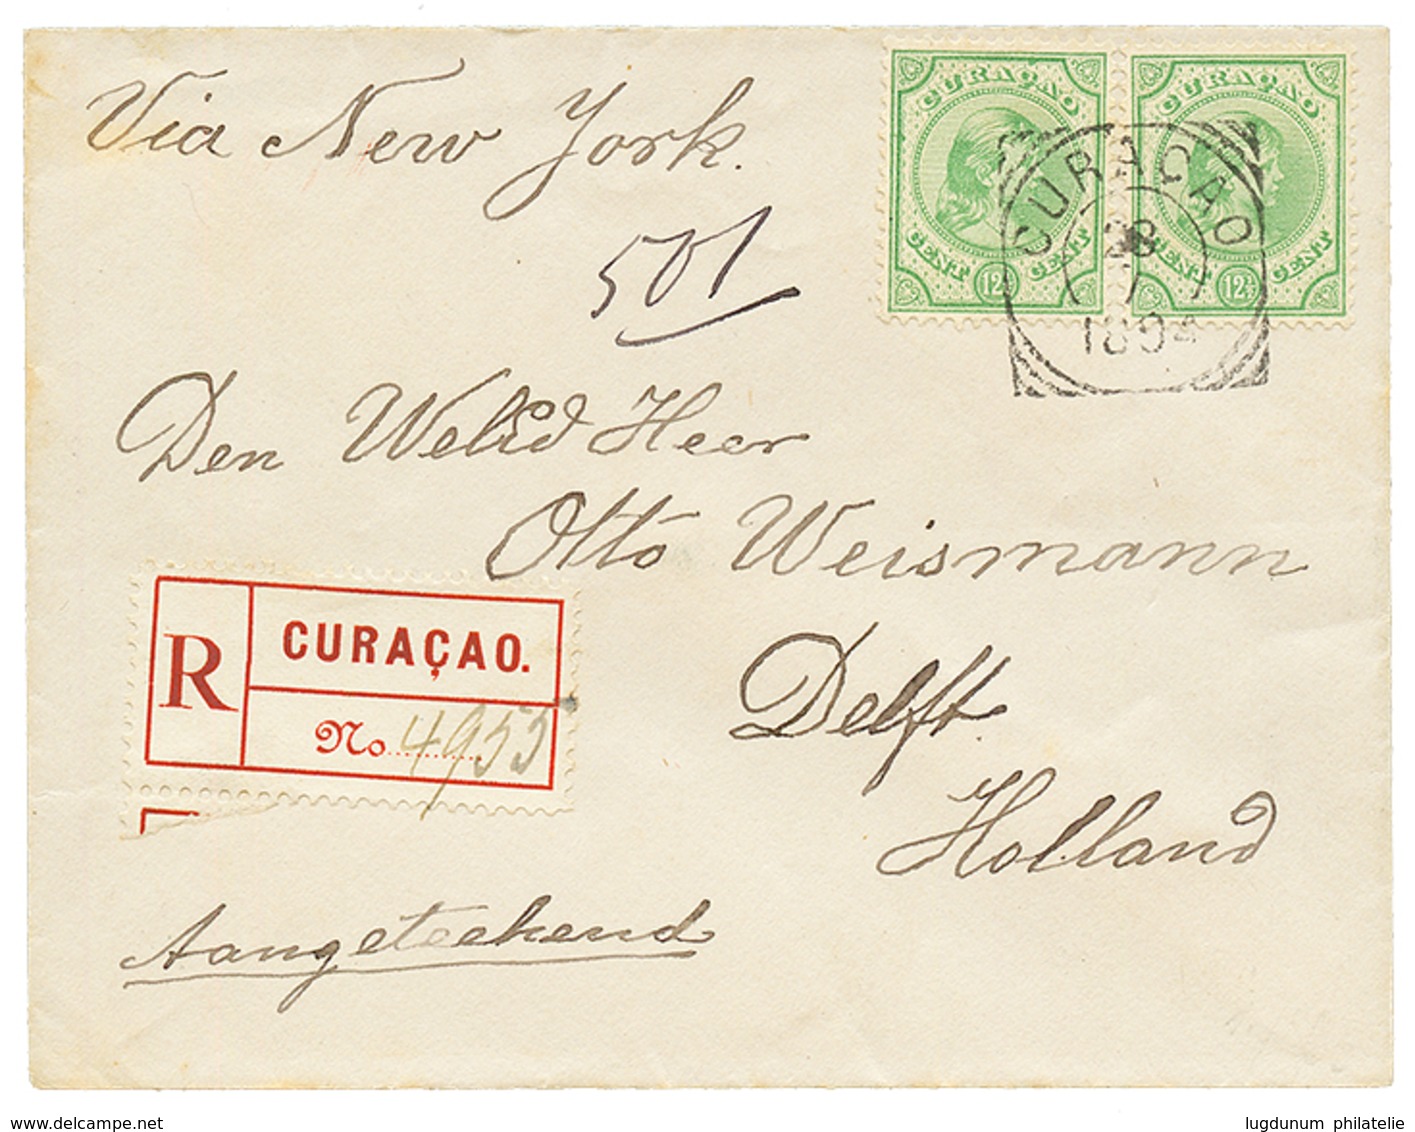 Via New York.
501
CURAÇAO
CENT 12½ CENT
CURAÇAO
CENT 12½ CENT
CURAÇAO
28
1
1894
Den Weled Heer
Otto Weismann
Delft.
Holland
R
CURAÇAO.
No 4955
Aangeteekend
www.delcampe.net
lugdunum philatelie